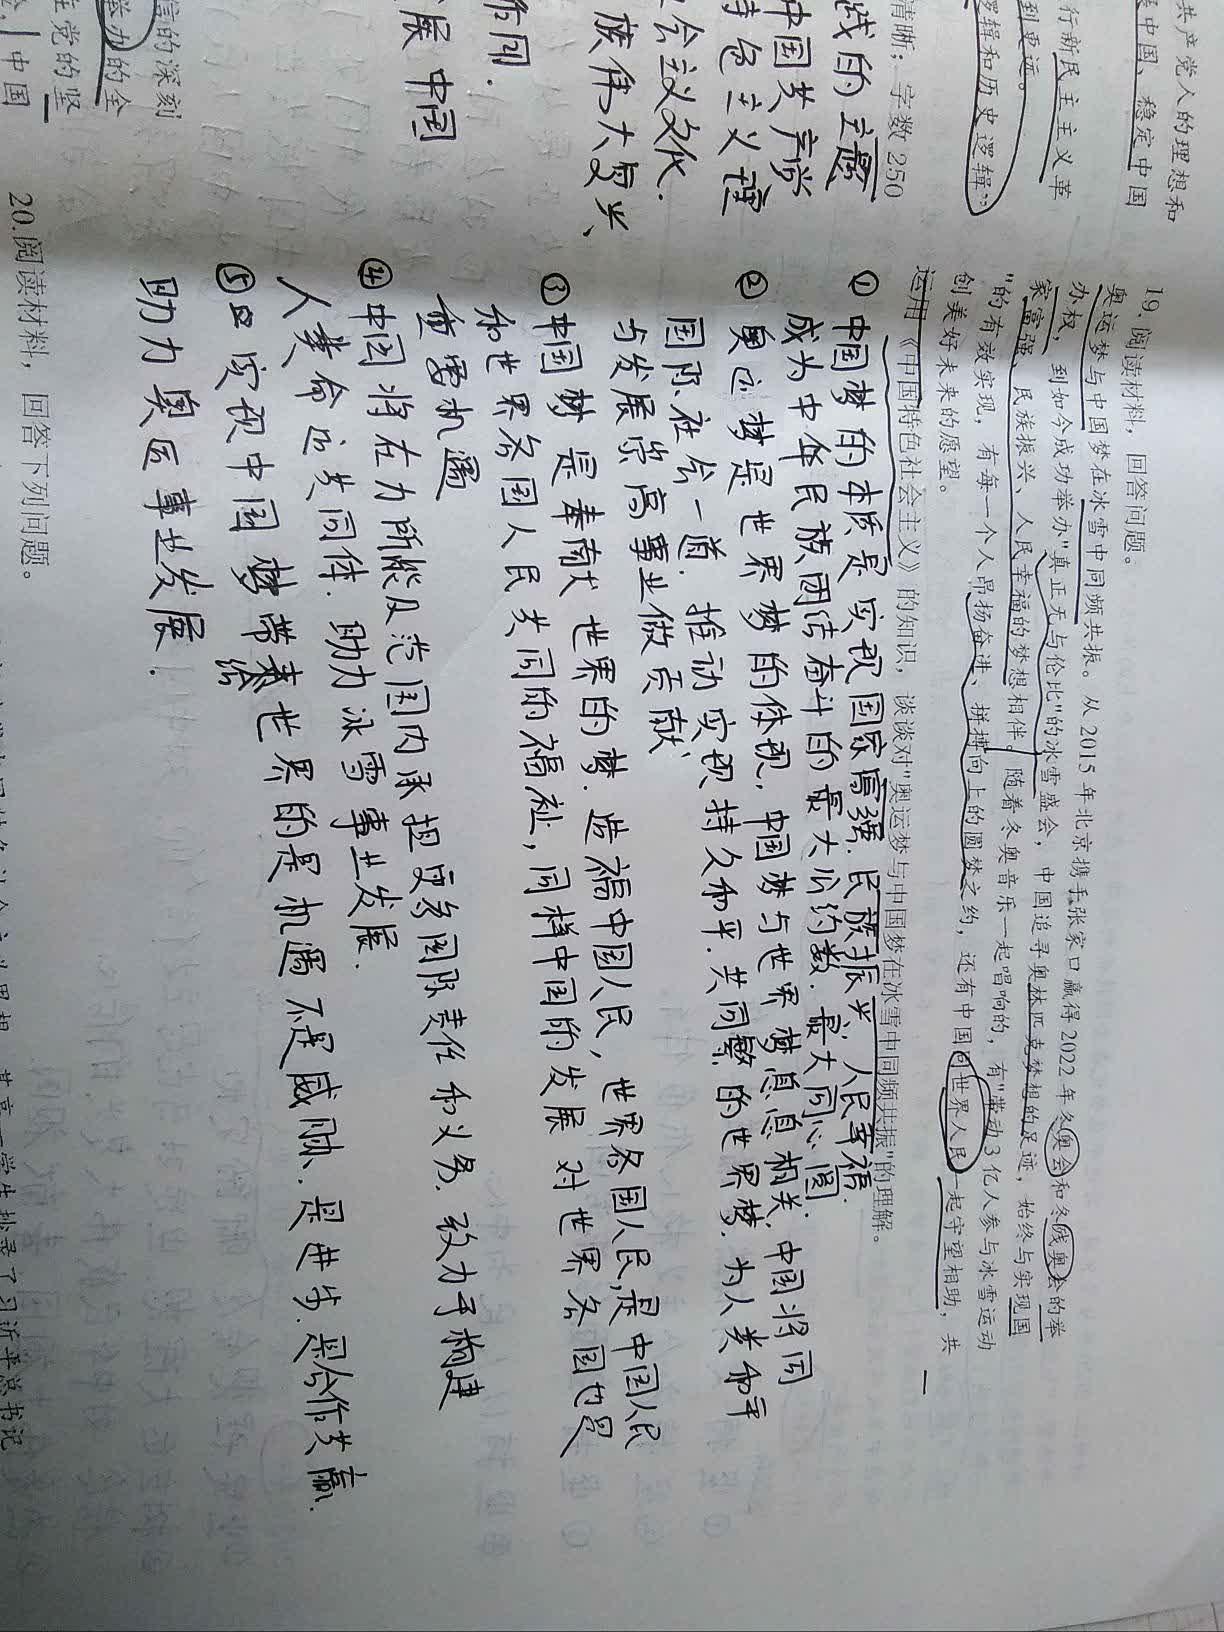 共产党人的理想和
中国、稳定中国
行新民主主义革
到更远。
逻辑和历史逻辑”
清晰；字数250
战的主题
中国共产党
特色主义理
会主义文化.
族伟大复兴、
作用.
展中国
信的深刻
举办的全
主党的坚
中国
19. 阅读材料，回答问题。
奥运梦与中国梦在冰雪中同频共振。从2015年北京携手张家口赢得2022年冬奥会和冬残奥会的举
办权，到如今成功举办"真正无与伦比"的冰雪盛会，中国追寻奥林匹克梦想的足迹，始终与实现国
家富强、民族振兴、人民幸福的梦想相伴。随着冬奥音乐一起唱响的，有"带动3亿人参与冰雪运动
"的有效实现，有每一个人昂扬奋进、拼搏向上的圆梦之约，还有中国同世界人民一起守望相助，共
创美好未来的愿望。
运用《中国特色社会主义》的知识，谈谈对"奥运梦与中国梦在冰雪中同频共振"的理解。
① 中国梦的本质是实现国家富强.民族振兴、人民幸福.
成为中华民族团结奋斗的最大公约数.最大同心圆
② 奥运梦是世界梦的体现，中国梦与世界梦息息相关，中国将同
国际社会一道.推动实现持久和平.共同繁的世界梦.为人类和平
与发展崇高事业做贡献
③ 中国梦是奉献世界的梦.造福中国人民，世界各国人民，是中国人民
和世界各国人民共同的福祉，同样中国的发展对世界各国也是
重要机遇
④ 中国将在力所能及范围内承担更多国际责任和义务.致力于构建
人类命运共同体.助力冰雪事业发展.
⑤ 实现中国梦带给世界的是机遇不是威胁.是进步.是合作共赢.
助力奥运事业发展.
20.阅读材料，回答下列问题。